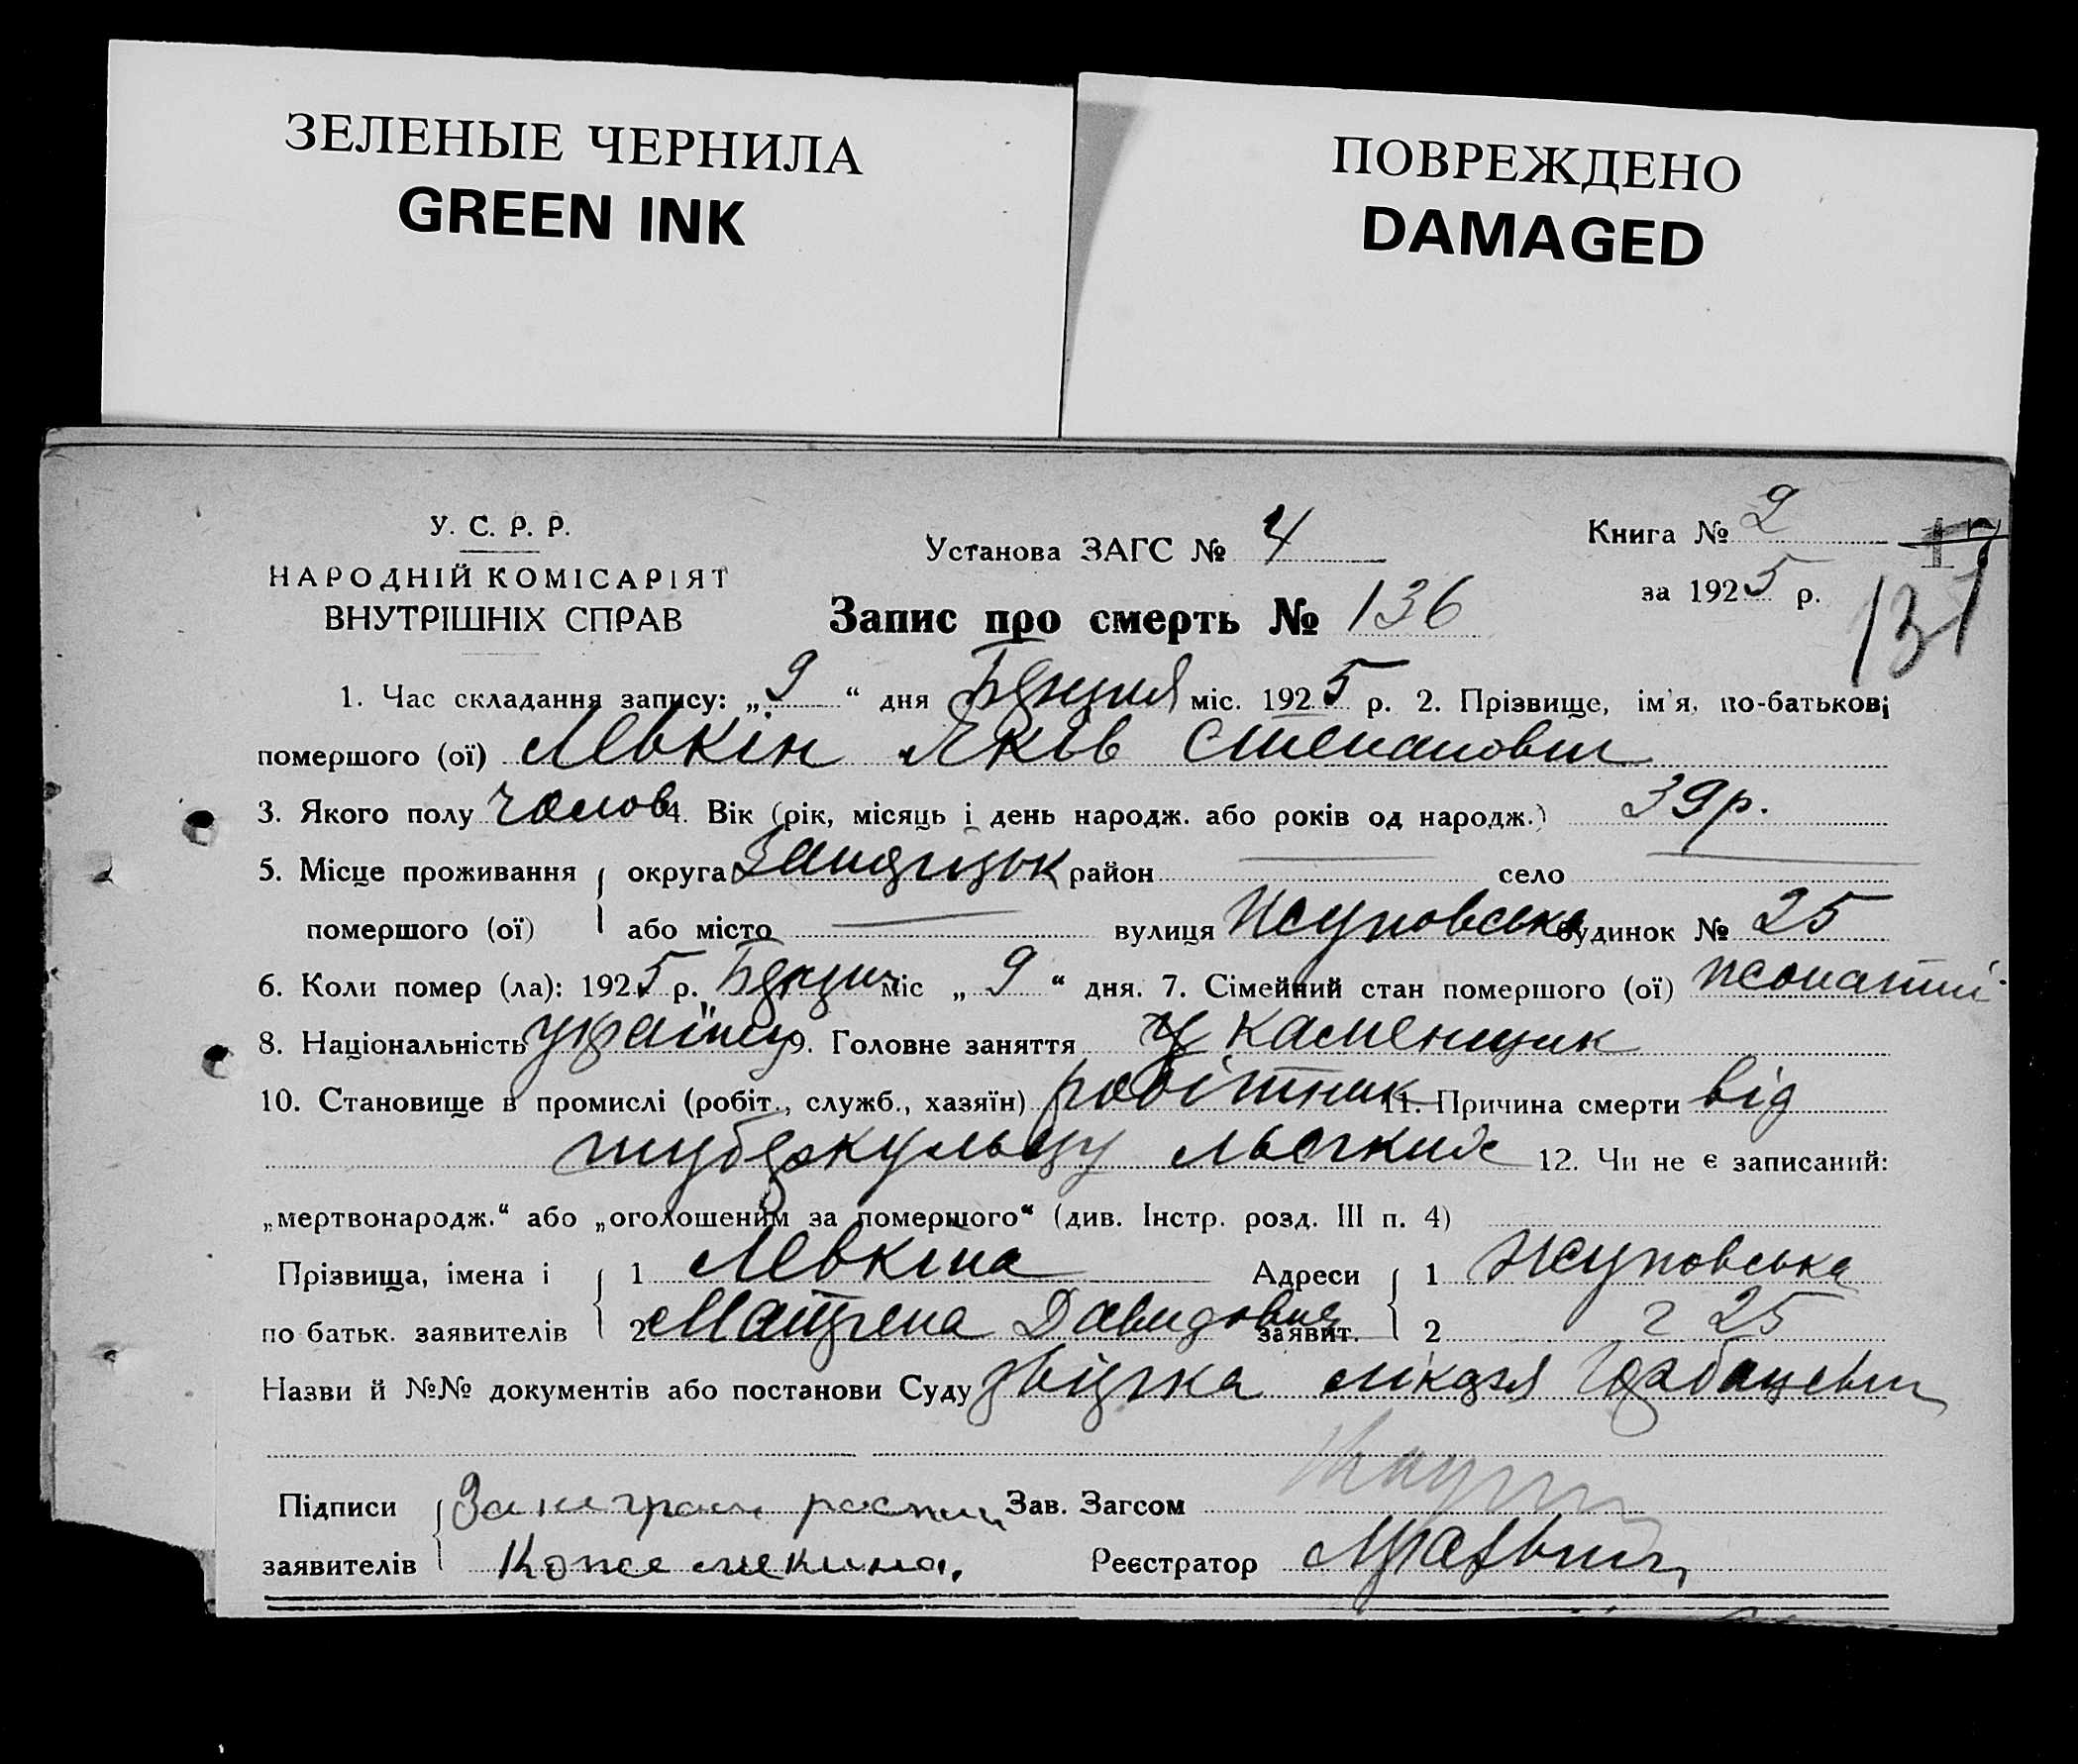 ЗЕЛЕНЫЕ ЧЕРНИЛА
GREEN INK
ПОВРЕЖДЕНО
DAMAGED
У. С. Р. Р.
НАРОДНІЙ КОМІСАРІЯТ
ВНУТРІШНІХ СПРАВ
Установа ЗАГС № 4
Книга № 2
17
за 1925 р.
137
Запис про смерть № 136
1. Час складання запису: „9“ дня міс. 1925 р. 2. Прізвище, ім'я, по-батькові
помершого (ої) Левкін Яків Степанович
3. Якого полу чолов 4. Вік (рік, місяць і день народж. або років од народж.) 39 р.
5. Місце проживання округа район село
помершого (ої) або місто вулиця будинок № 25
6. Коли помер (ла): 1925 р. міс „9“ дня. 7. Сімейний стан помершого (ої) жонатий
8. Національність україн 9. Головне заняття каменщик
10. Становище в промислі (робіт., служб., хазяїн) робітник 11. Причина смерти від
туберкульозу льогких 12. Чи не є записаний:
„мертвонародж.“ або „оголошеним за помершого“ (див. Інстр. розд. III п. 4)
Прізвища, імена і 1 Левкіна Адреси 1
по батьк. заявителів 2 Матрена Давидовна заявит. 2 25
Назви й №№ документів або постанови Суду довідка лікаря
Підписи Зав. Загсом
заявителів Реєстратор